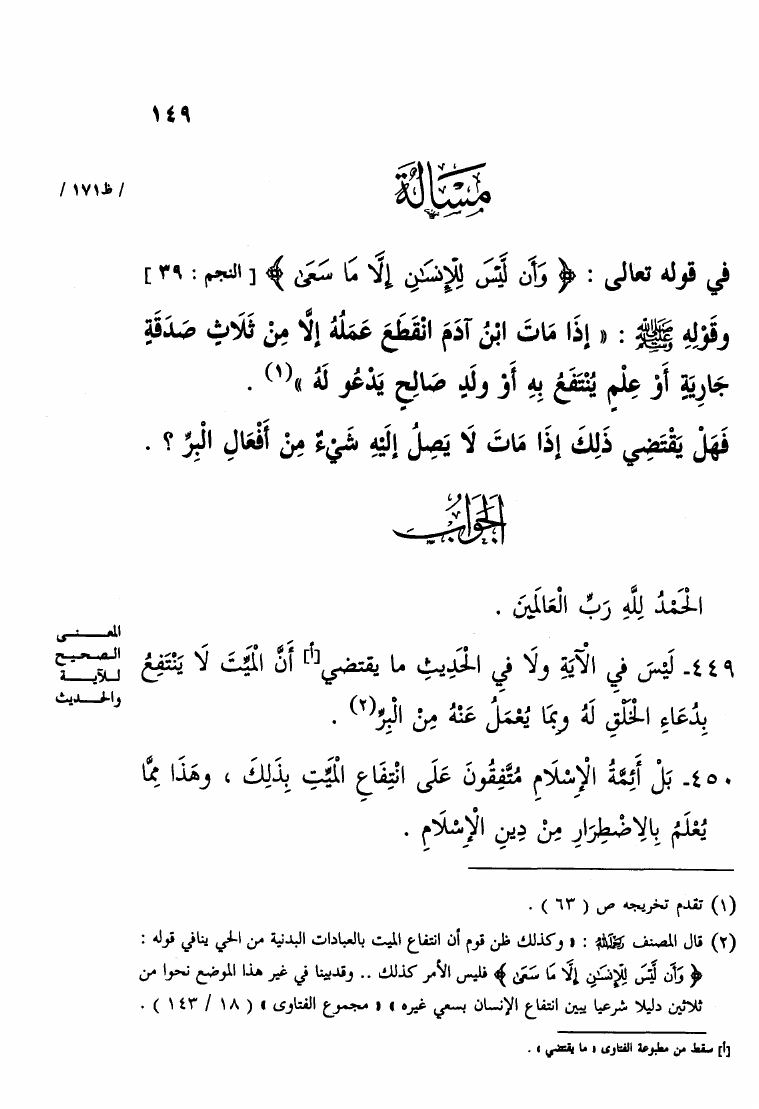 ١٤٩
مَسْأَلَة
/ ظ١٧١ /
في قوله تعالى : ﴿ وَأَن لَّيْسَ لِلْإِنسَٰنِ إِلَّا مَا سَعَىٰ ﴾ [ النجم : ٣٩ ]
وقَوْلِهِ ﷺ : « إِذَا مَاتَ ابْنُ آدَمَ انْقَطَعَ عَمَلُهُ إِلَّا مِنْ ثَلَاثٍ صَدَقَةٍ
جَارِيَةٍ أَوْ عِلْمٍ يُنْتَفَعُ بِهِ أَوْ ولَدٍ صَالِحٍ يَدْعُو لَهُ »(١) .
فَهَلْ يَقْتَضِي ذَلِكَ إِذَا مَاتَ لَا يَصِلُ إِلَيْهِ شَيْءٌ مِنْ أَفْعَالِ الْبِرِّ ؟ .
الجَوَابُ
الْحَمْدُ لِلَّهِ رَبِّ الْعَالَمِينَ .
المعنى
الصحيح
للآية
والحديث
٤٤٩ـ لَيْسَ فِي الْآيَةِ ولَا فِي الْحَدِيثِ ما يقتضي[أ] أَنَّ الْمَيِّتَ لَا يَنْتَفِعُ
بِدُعَاءِ الْخَلْقِ لَهُ وبِمَا يُعْمَلُ عَنْهُ مِنْ الْبِرِّ(٢) .
٤٥٠ـ بَلْ أَئِمَّةُ الْإِسْلَامِ مُتَّفِقُونَ عَلَى انْتِفَاعِ الْمَيِّتِ بِذَلِكَ ، وهَذَا مِمَّا
يُعْلَمُ بِالِاضْطِرَارِ مِنْ دِينِ الْإِسْلَامِ .
(١) تقدم تخريجه ص ( ٦٣ ) .
(٢) قال المصنف رَحِمَهُ اللهُ : « وكذلك ظن قوم أن انتفاع الميت بالعبادات البدنية من الحي ينافي قوله :
﴿ وَأَن لَّيْسَ لِلْإِنسَٰنِ إِلَّا مَا سَعَىٰ ﴾ فليس الأمر كذلك .. وقدبينا في غير هذا الموضع نحوا من
ثلاثين دليلا شرعيا يبين انتفاع الإنسان بسعي غيره » « مجموع الفتاوى » ( ١٨ / ١٤٣ ) .
[أ] سقط من مطبوعة الفتاوى « ما يقتضي » .